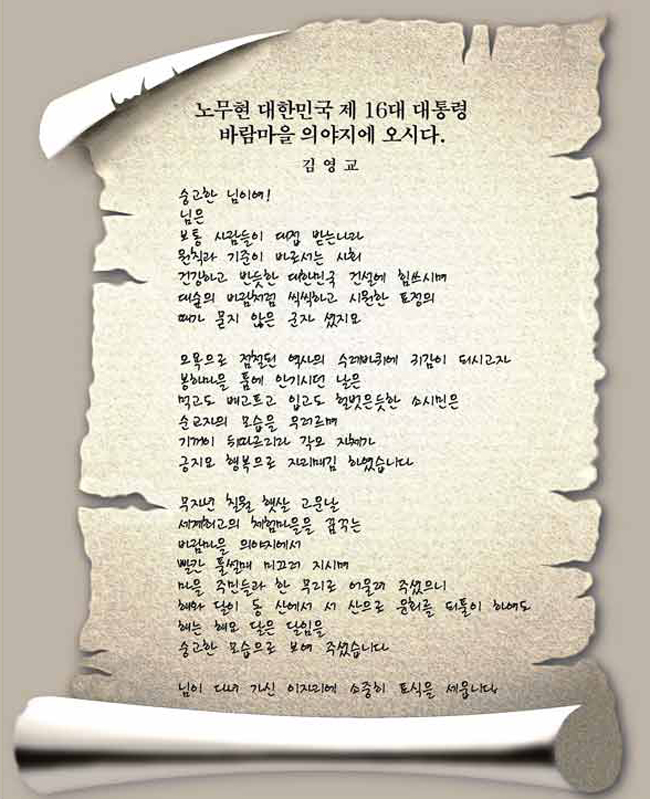 노무현 대한민국 제 16대 대통령
바람마을 의야지에 오시다.
김영교
숭고한 님이여!
님은
보통 사람들이 대접 받는나라
원칙과 기준이 바로서는 사회
건강하고 반듯한 대한민국 건설에 힘쓰시며
대숲의 바람처럼 씩씩하고 시원한 표정의
때가 묻지 않은 군자 셨지요
오욕으로 점철된 역사의 수레바퀴에 귀감이 되시고자
봉하마을 품에 안기시던 날은
먹고도 배고프고 입고도 헐벗은듯한 소시민은
순교자의 모습을 우러르며
기꺼이 뒤따르리라 각오 자체가
긍지요 행복으로 자리매김 하였습니다
무자년 칠월 햇살 고운날
세계최고의 체험마을을 꿈꾸는
바람마을 의야지에서
빨간 풀썰매 미끄러 지시며
마을 주민들과 한 무리로 어울려 주셨으니
해와 달이 동 산에서 서 산으로 윤회를 되풀이 하여도
해는 해요 달은 달임을
숭고한 모습으로 보여 주셨습니다
님이 다녀 가신 이자리에 소중히 표식을 세웁니다